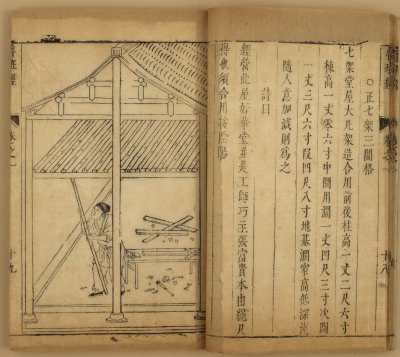 ○正七架三間格
七架堂屋大凡架造合用前後柱高一丈二尺六寸
棟高一丈零六寸中間用濶一丈四尺三寸次濶
一丈三尺六寸段四尺八寸地基濶窄高低深淺
隨人意加減則為之
詩曰
經營此屋好華堂並是工師巧主張富貴本由繩尺
得也須合用按陰陽
魯班經
卷之一
十九